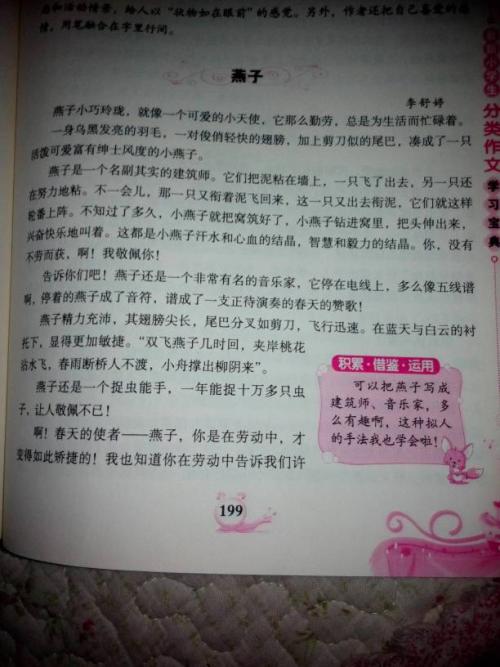 由和活动情景，给人以“状物如在眼前”的感觉。另外，作者还把自己喜爱的感
情，用笔融合在字里行间。
燕子
李舒婷
燕子小巧玲珑，就像一个可爱的小天使，它那么勤劳，总是为生活而忙碌着。
一身乌黑发亮的羽毛，一对俊俏轻快的翅膀，加上剪刀似的尾巴，凑成了一只
活泼可爱富有绅士风度的小燕子。
燕子是一个名副其实的建筑师。它们把泥粘在墙上，一只飞了出去，另一只还
在努力地粘。不一会儿，那一只又衔着泥飞回来，这一只又出去衔泥，它们就这样
轮番上阵。不知过了多久，小燕子就把窝筑好了，小燕子钻进窝里，把头伸出来，
兴奋快乐地叫着。这都是小燕子汗水和心血的结晶，智慧和毅力的结晶。你，没有
不劳而获，啊！我敬佩你！
告诉你们吧！燕子还是一个非常有名的音乐家，它停在电线上，多么像五线谱
啊，停着的燕子成了音符，谱成了一支正待演奏的春天的赞歌！
燕子精力充沛，其翅膀尖长，尾巴分叉如剪刀，飞行迅速。在蓝天与白云的衬
托下，显得更加敏捷。“双飞燕子几时回，夹岸桃花
沾水飞，春雨断桥人不渡，小舟撑出柳阴来”。
燕子还是一个捉虫能手，一年能捉十万多只虫
子，让人敬佩不已！
啊！春天的使者——燕子，你是在劳动中，才
变得如此矫捷的！我也知道你在劳动中告诉我们许
积累·借鉴·运用
可以把燕子写成
建筑师、音乐家，多
么有趣啊，这种拟人
的手法我也学会啦！
199
小学生分类作文学习宝典